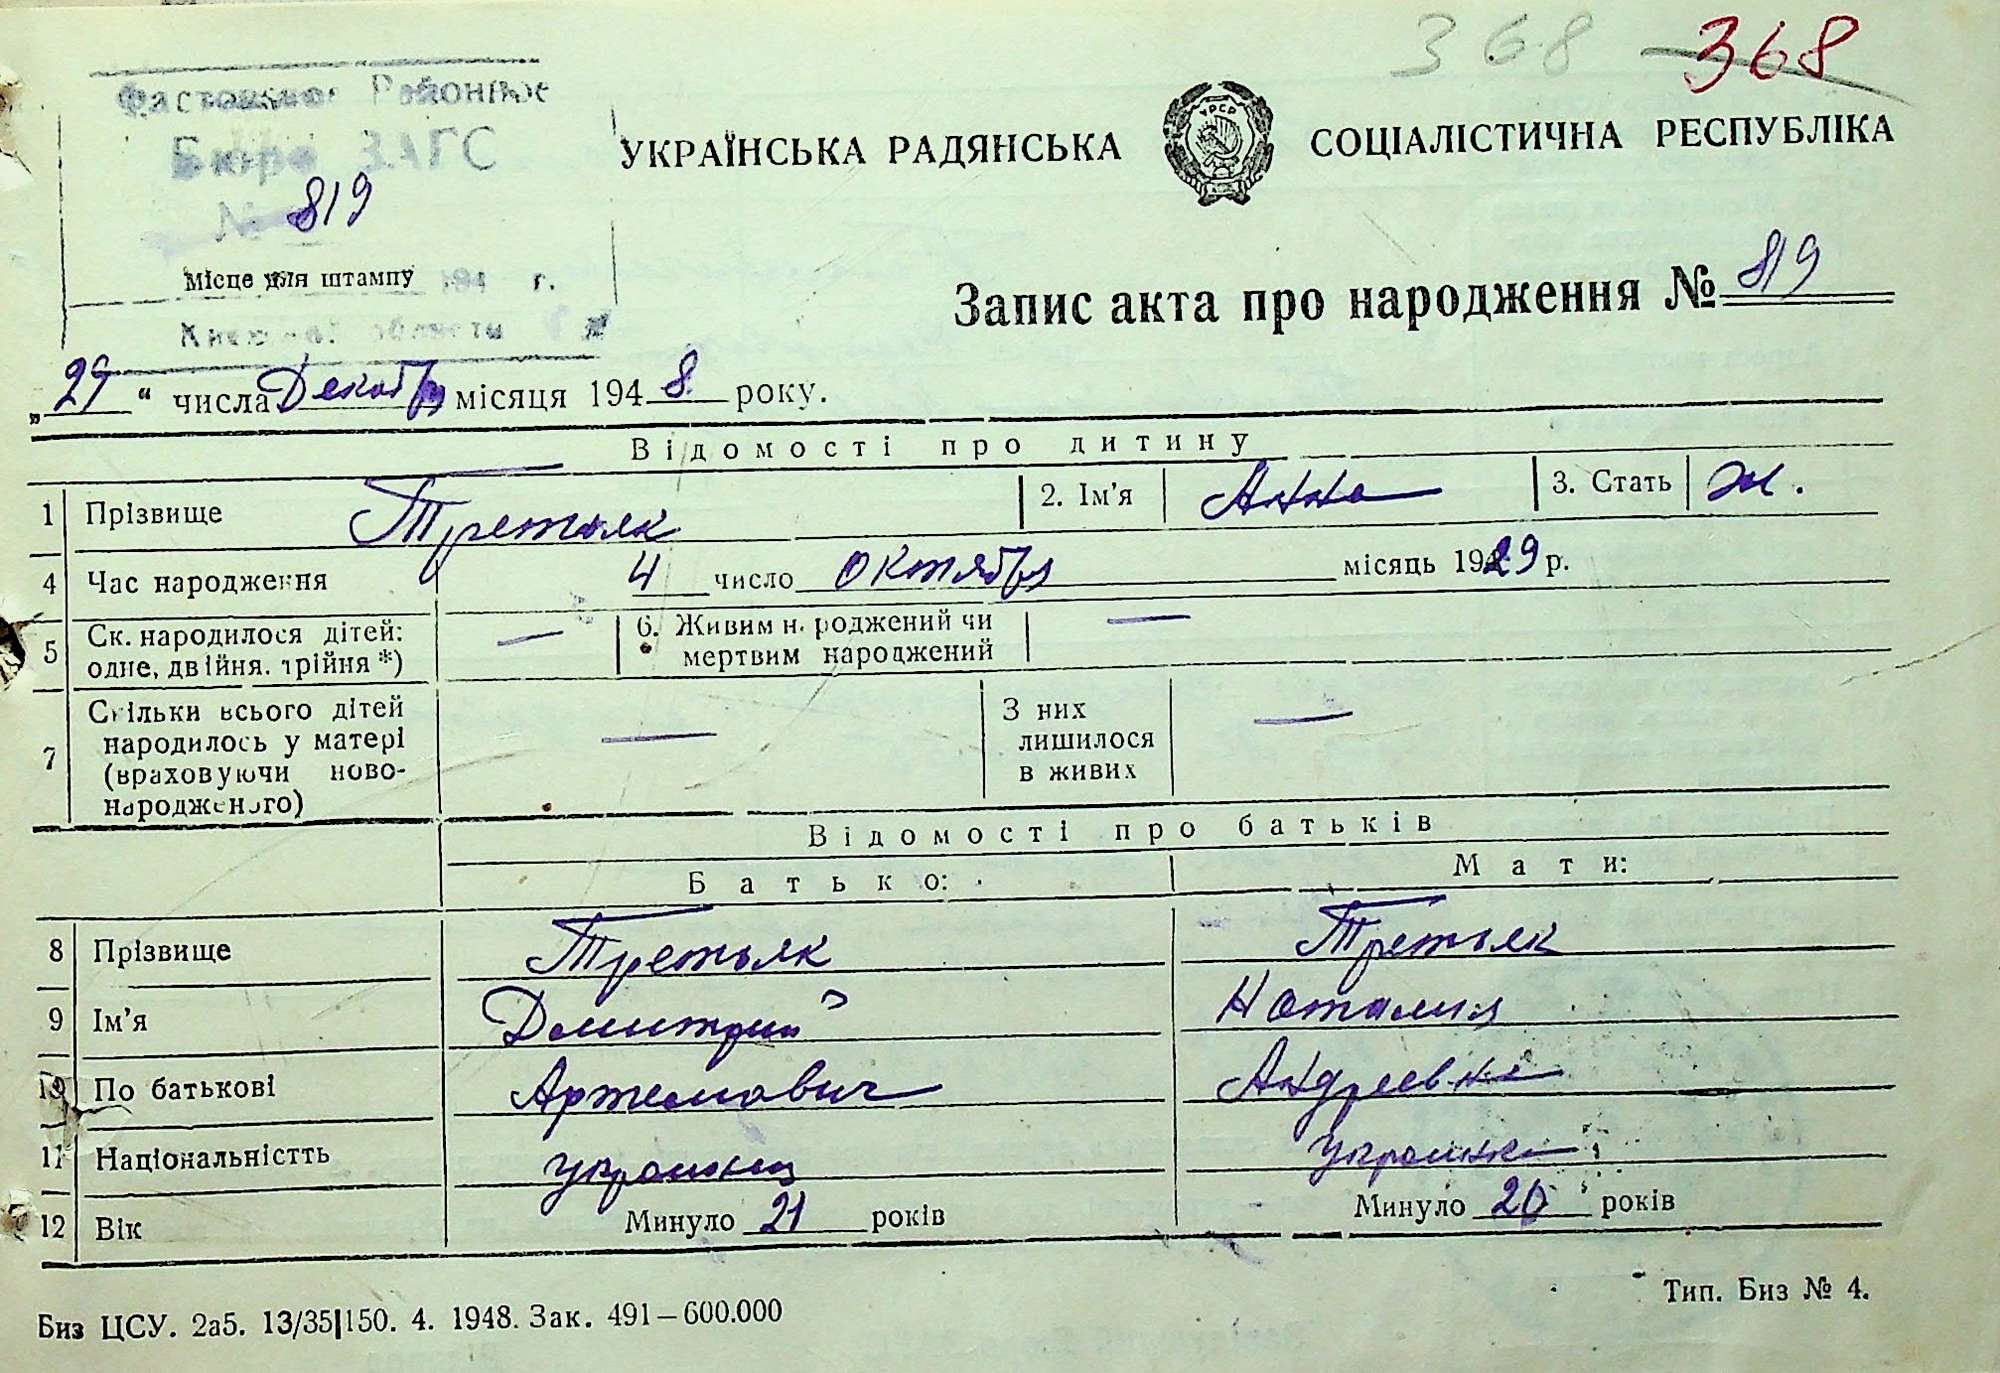 368 368
Районное
Бюро ЗАГС
№ 819
Місце для штампу 194 г.
области
УКРАЇНСЬКА РАДЯНСЬКА СОЦІАЛІСТИЧНА РЕСПУБЛІКА
УРСР
Запис акта про народження № 819
„29“ числа Декабря місяця 1948. року.
Відомості про дитину
1 Прізвище Третьяк 2. Ім'я Анна 3. Стать ж.
4 Час народження 4 число октября місяць 1929 р.
5 Ск. народилося дітей: одне, двійня. трійня *) — 6. Живим народжений чи мертвим народжений —
7 Скільки всього дітей народилось у матері (враховуючи ново-народженого) — З них лишилося в живих —
Відомості про батьків
Батько: Мати:
8 Прізвище Третьяк Третьяк
9 Ім'я Дмитрий Наталия
10 По батькові Артемович Андреевна
11 Національністть украинец украинка
12 Вік Минуло 21 років Минуло 20 років
Биз ЦСУ. 2а5. 13/35|150. 4. 1948. Зак. 491–600.000
Тип. Биз № 4.